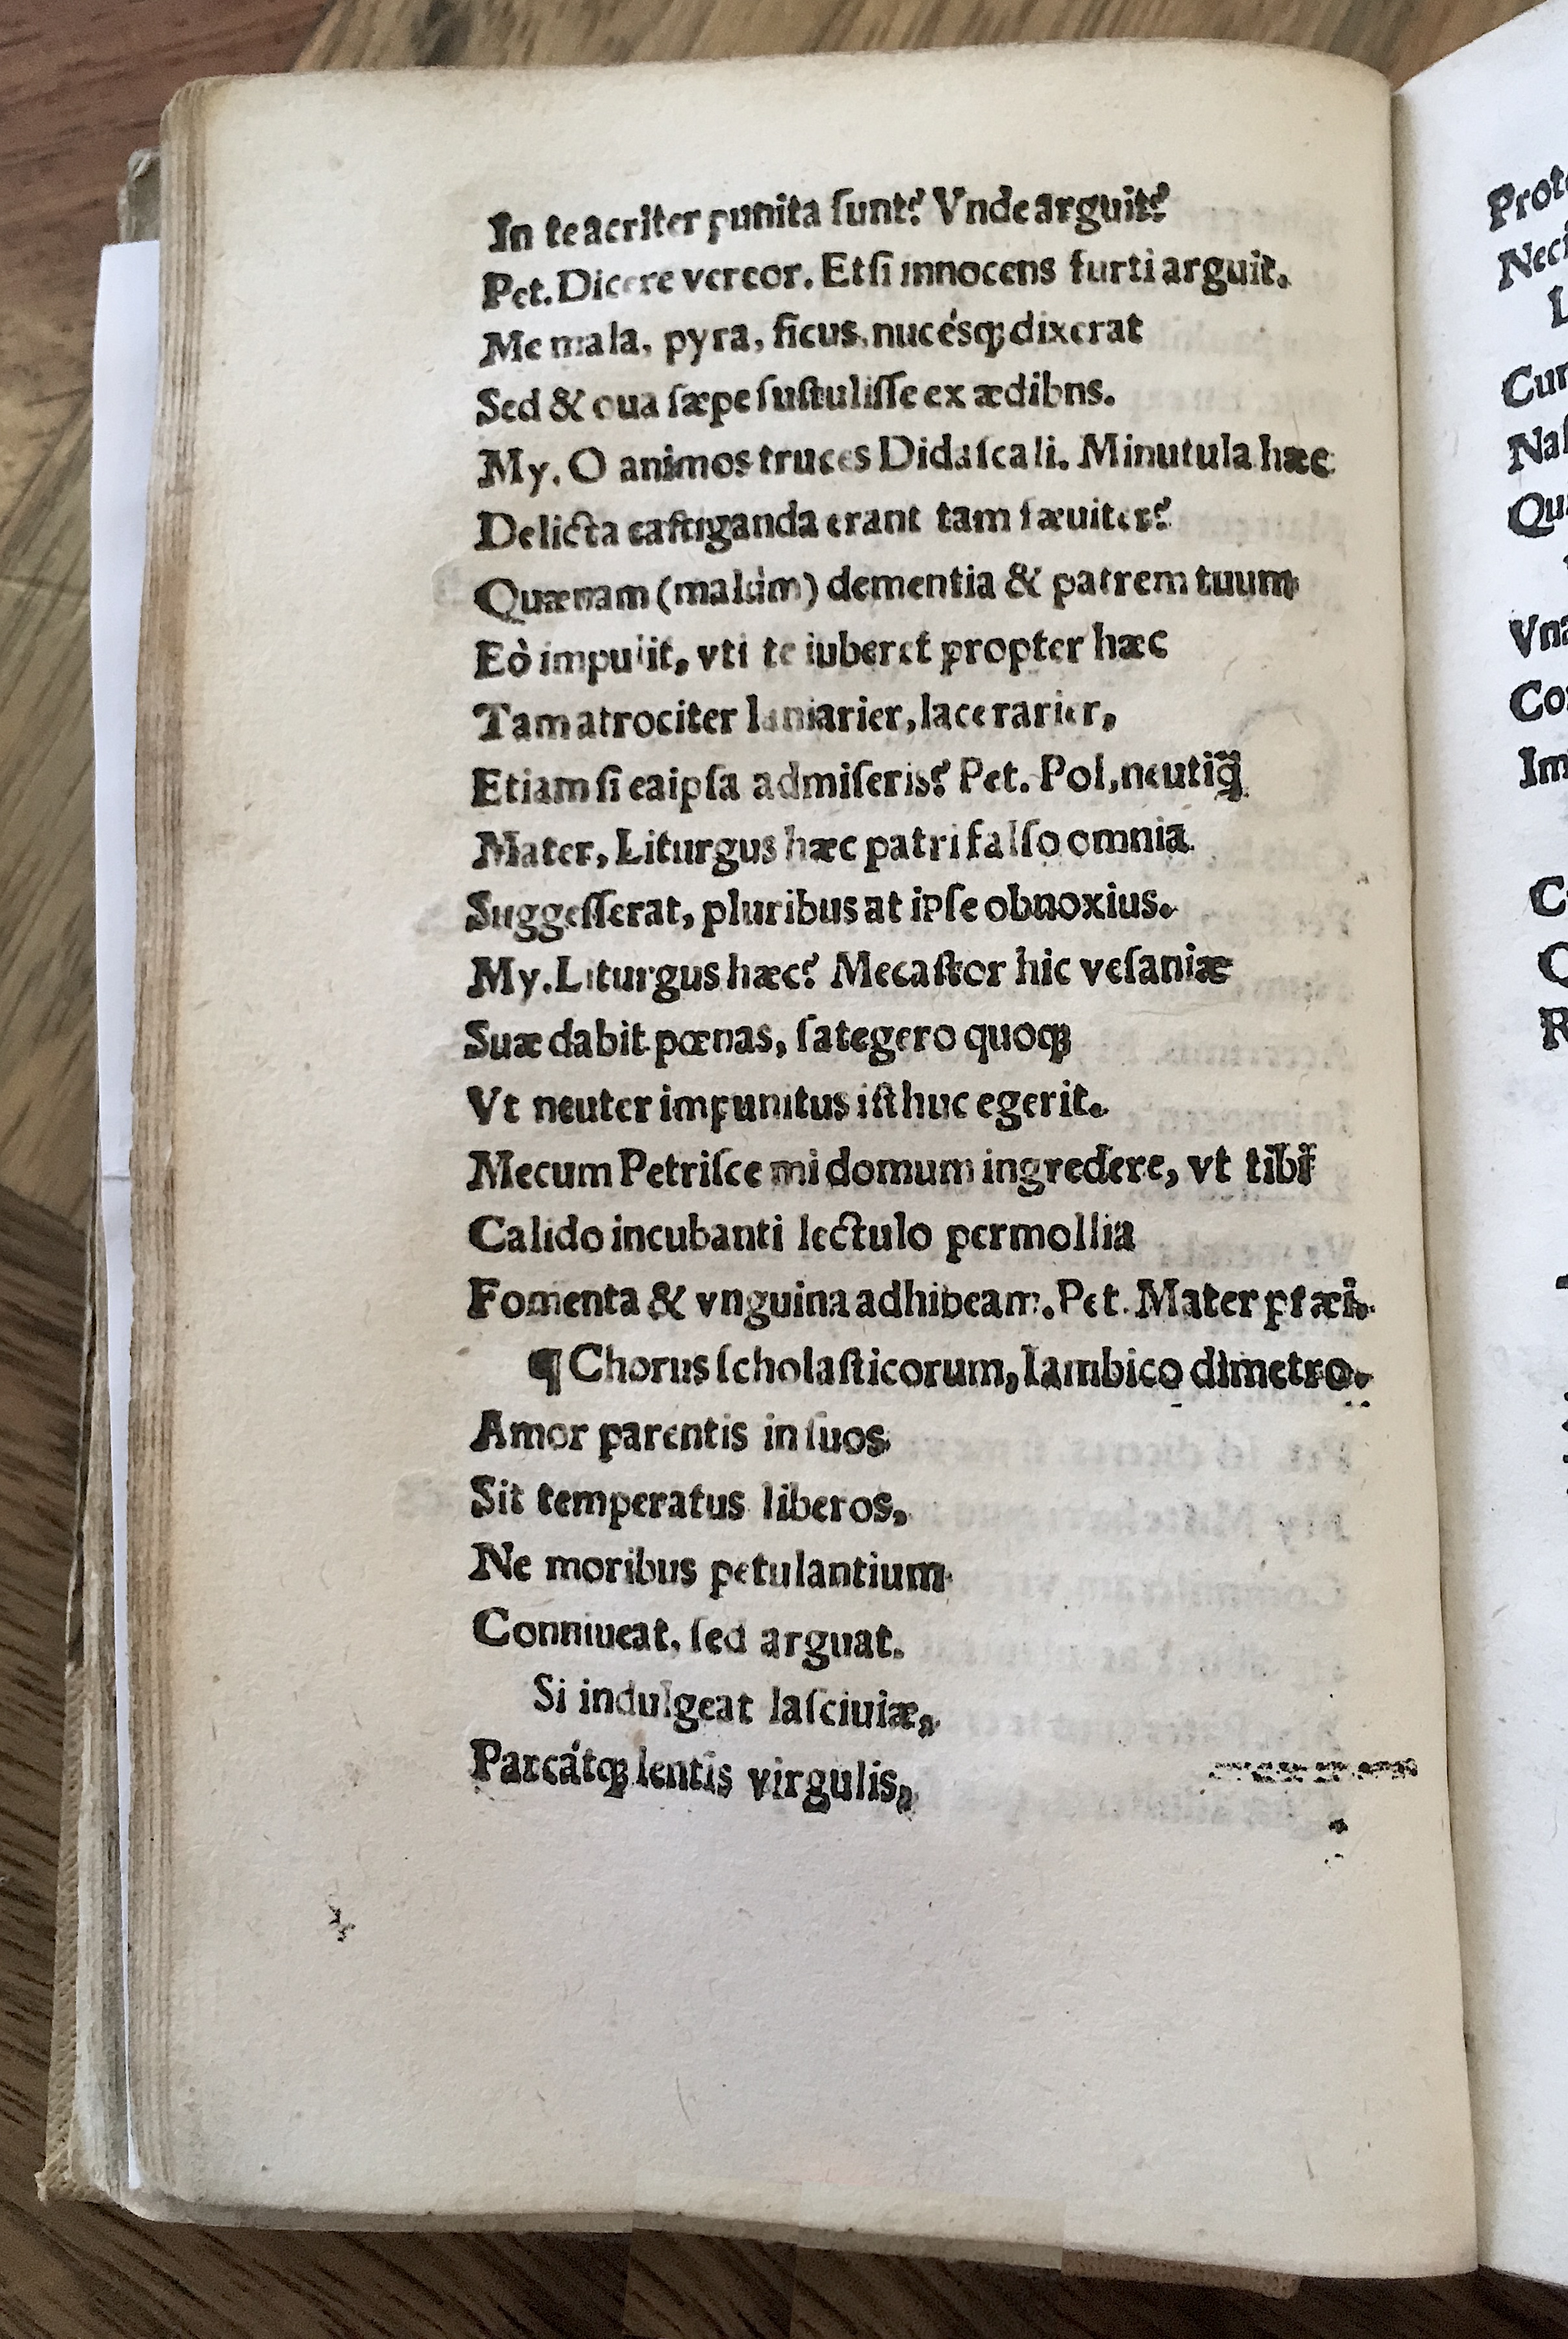 In te acriter punita ſunt? Vnde arguit?
Pet. Dicere vereor. Etſi innocens furti arguit.
Me mala, pyra, ficus, nucésq; dixerat
Sed & oua ſæpe ſuſtuliſſe ex ædibns.
My. O animos truces Didaſcali. Minutula hæc
Delicta caſtiganda erant tam ſæuiter?
Quænam (malùm) dementia & patrem tuum
Eò impulit, vti te iuberet propter hæc
Tam atrociter laniarier, lacerarier,
Etiam ſi ea ipſa admiſeris? Pet. Pol, neutiq̃
Mater, Liturgus hæc patri falſo omnia
Suggeſſerat, pluribus at ipſe obnoxius.
My. Liturgus hæc? Mecaſtor hic veſaniæ
Suæ dabit pœnas, ſategero quoq;
Vt neuter impunitus iſthuc egerit.
Mecum Petriſce mi domum ingredere, vt tibi
Calido incubanti lectulo permollia
Fomenta & vnguina adhibeam. Pet. Mater præi.
¶ Chorus ſcholaſticorum, Iambico dimetro.
Amor parentis in ſuos
Sit temperatus liberos,
Ne moribus petulantium
Conniueat, ſed arguat.
Si indulgeat laſciuiæ,
Parcátq; lentis virgulis,
Prot
Neci
L
Cur
Naſ
Qu
Vna
Co
Im
C
R